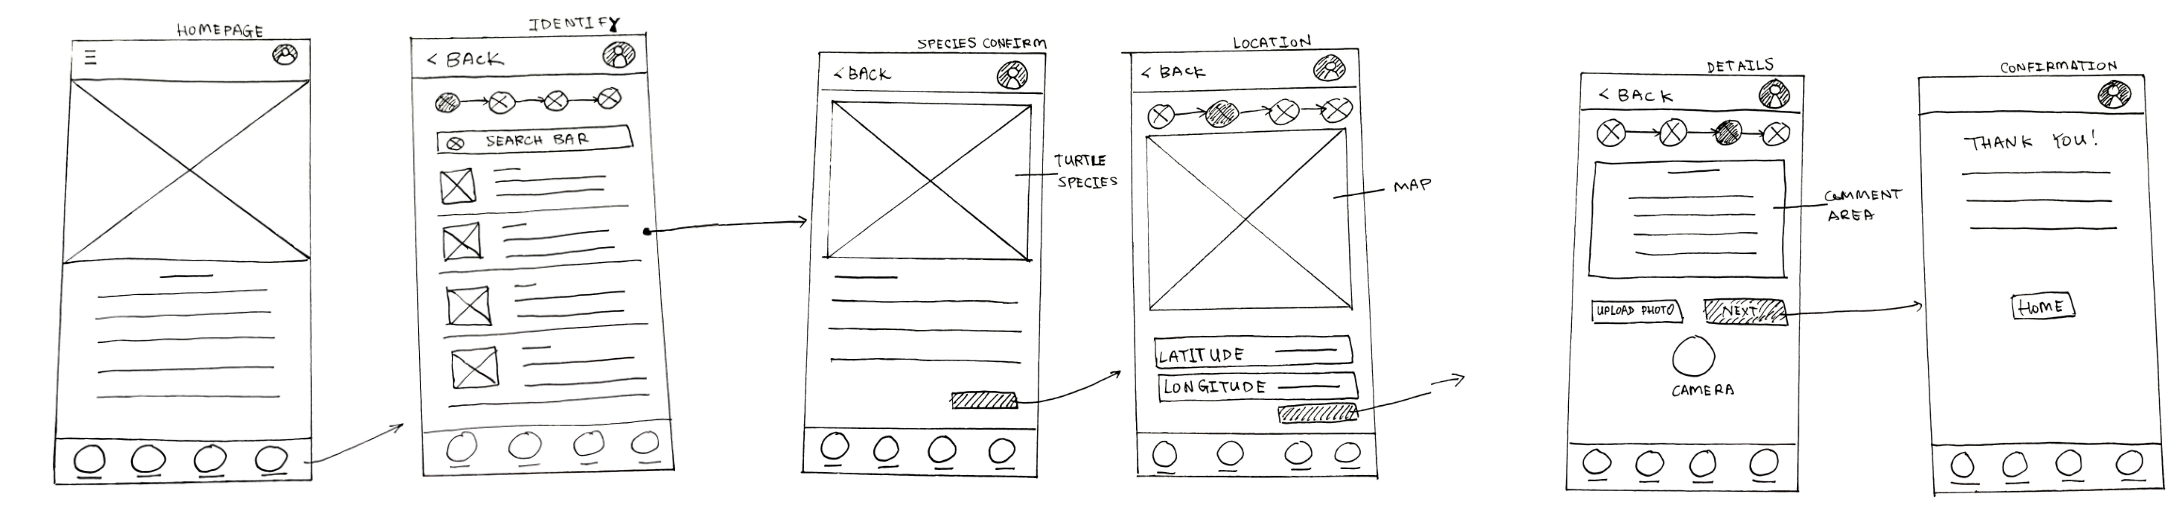 HOMEPAGE
IDENTIFY
< BACK
SEARCH BAR
SPECIES CONFIRM
< BACK
TURTLE
SPECIES
LOCATION
< BACK
MAP
LATITUDE
LONGITUDE
DETAILS
< BACK
COMMENT
AREA
UPLOAD PHOTO
NEXT
CAMERA
CONFIRMATION
THANK YOU!
HOME